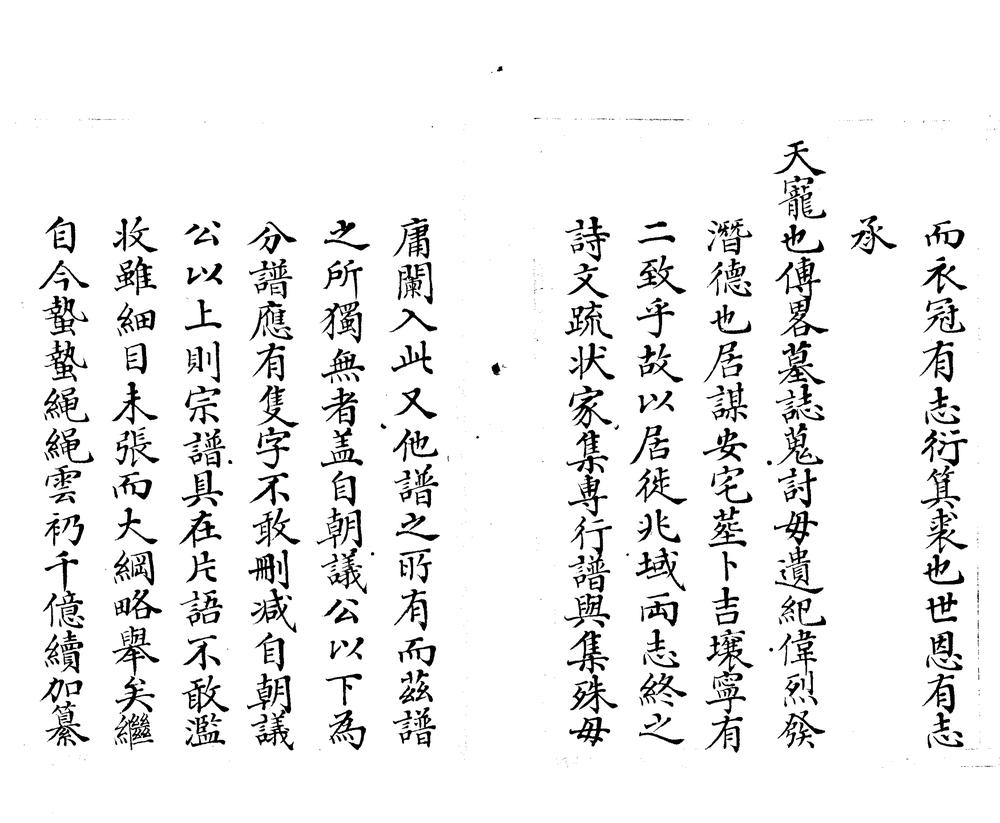 而衣冠有志衍箕裘也世恩有志
承
天寵也傳畧墓誌蒐討毋遺紀偉烈發
潛德也居謀安宅塋卜吉壤寧有
二致乎故以居徙兆域両志終之
詩文疏状家集專行譜與集殊毋
庸闌入此又他譜之所有而茲譜
之所獨無者盖自朝議公以下為
分譜應有隻字不敢刪减自朝議
公以上則宗譜具在片語不敢濫
收雖細目未張而大綱略舉矣繼
自今蟄蟄繩繩雲礽千億續加纂